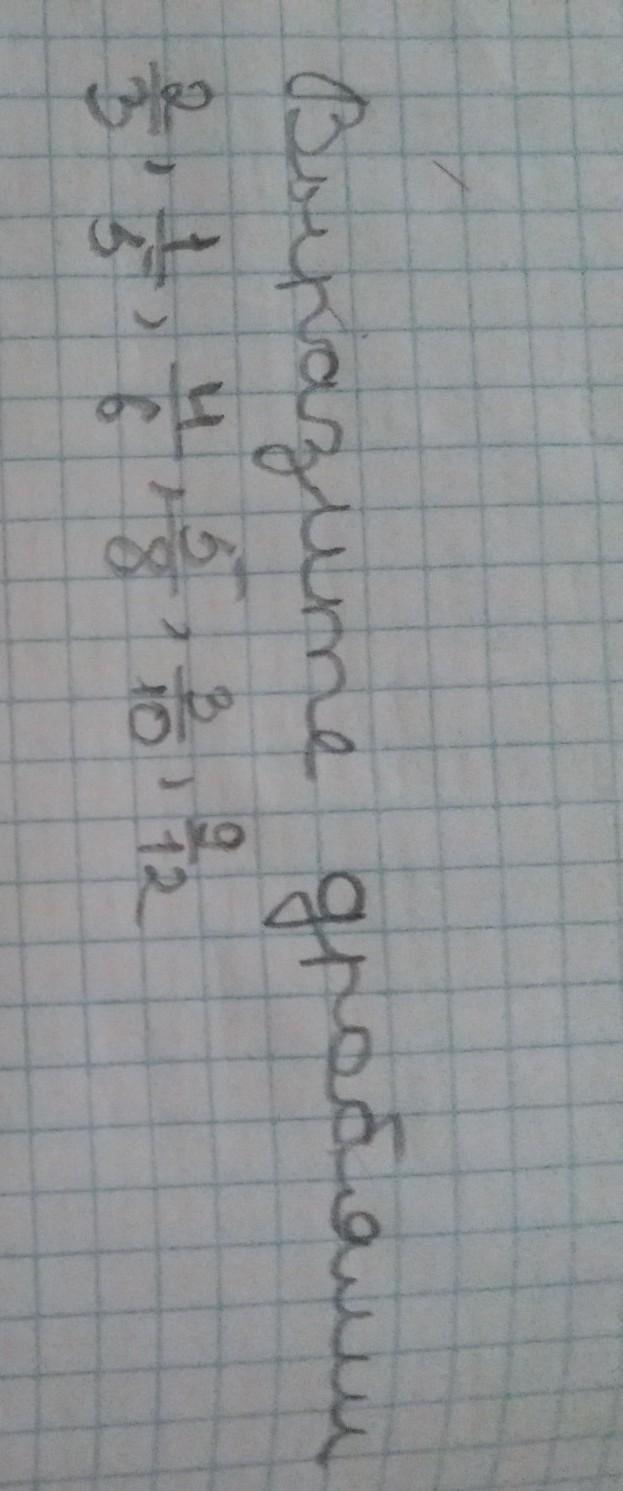 Выразите дробями
2/3, 1/5, 4/6, 5/8, 3/10, 9/12